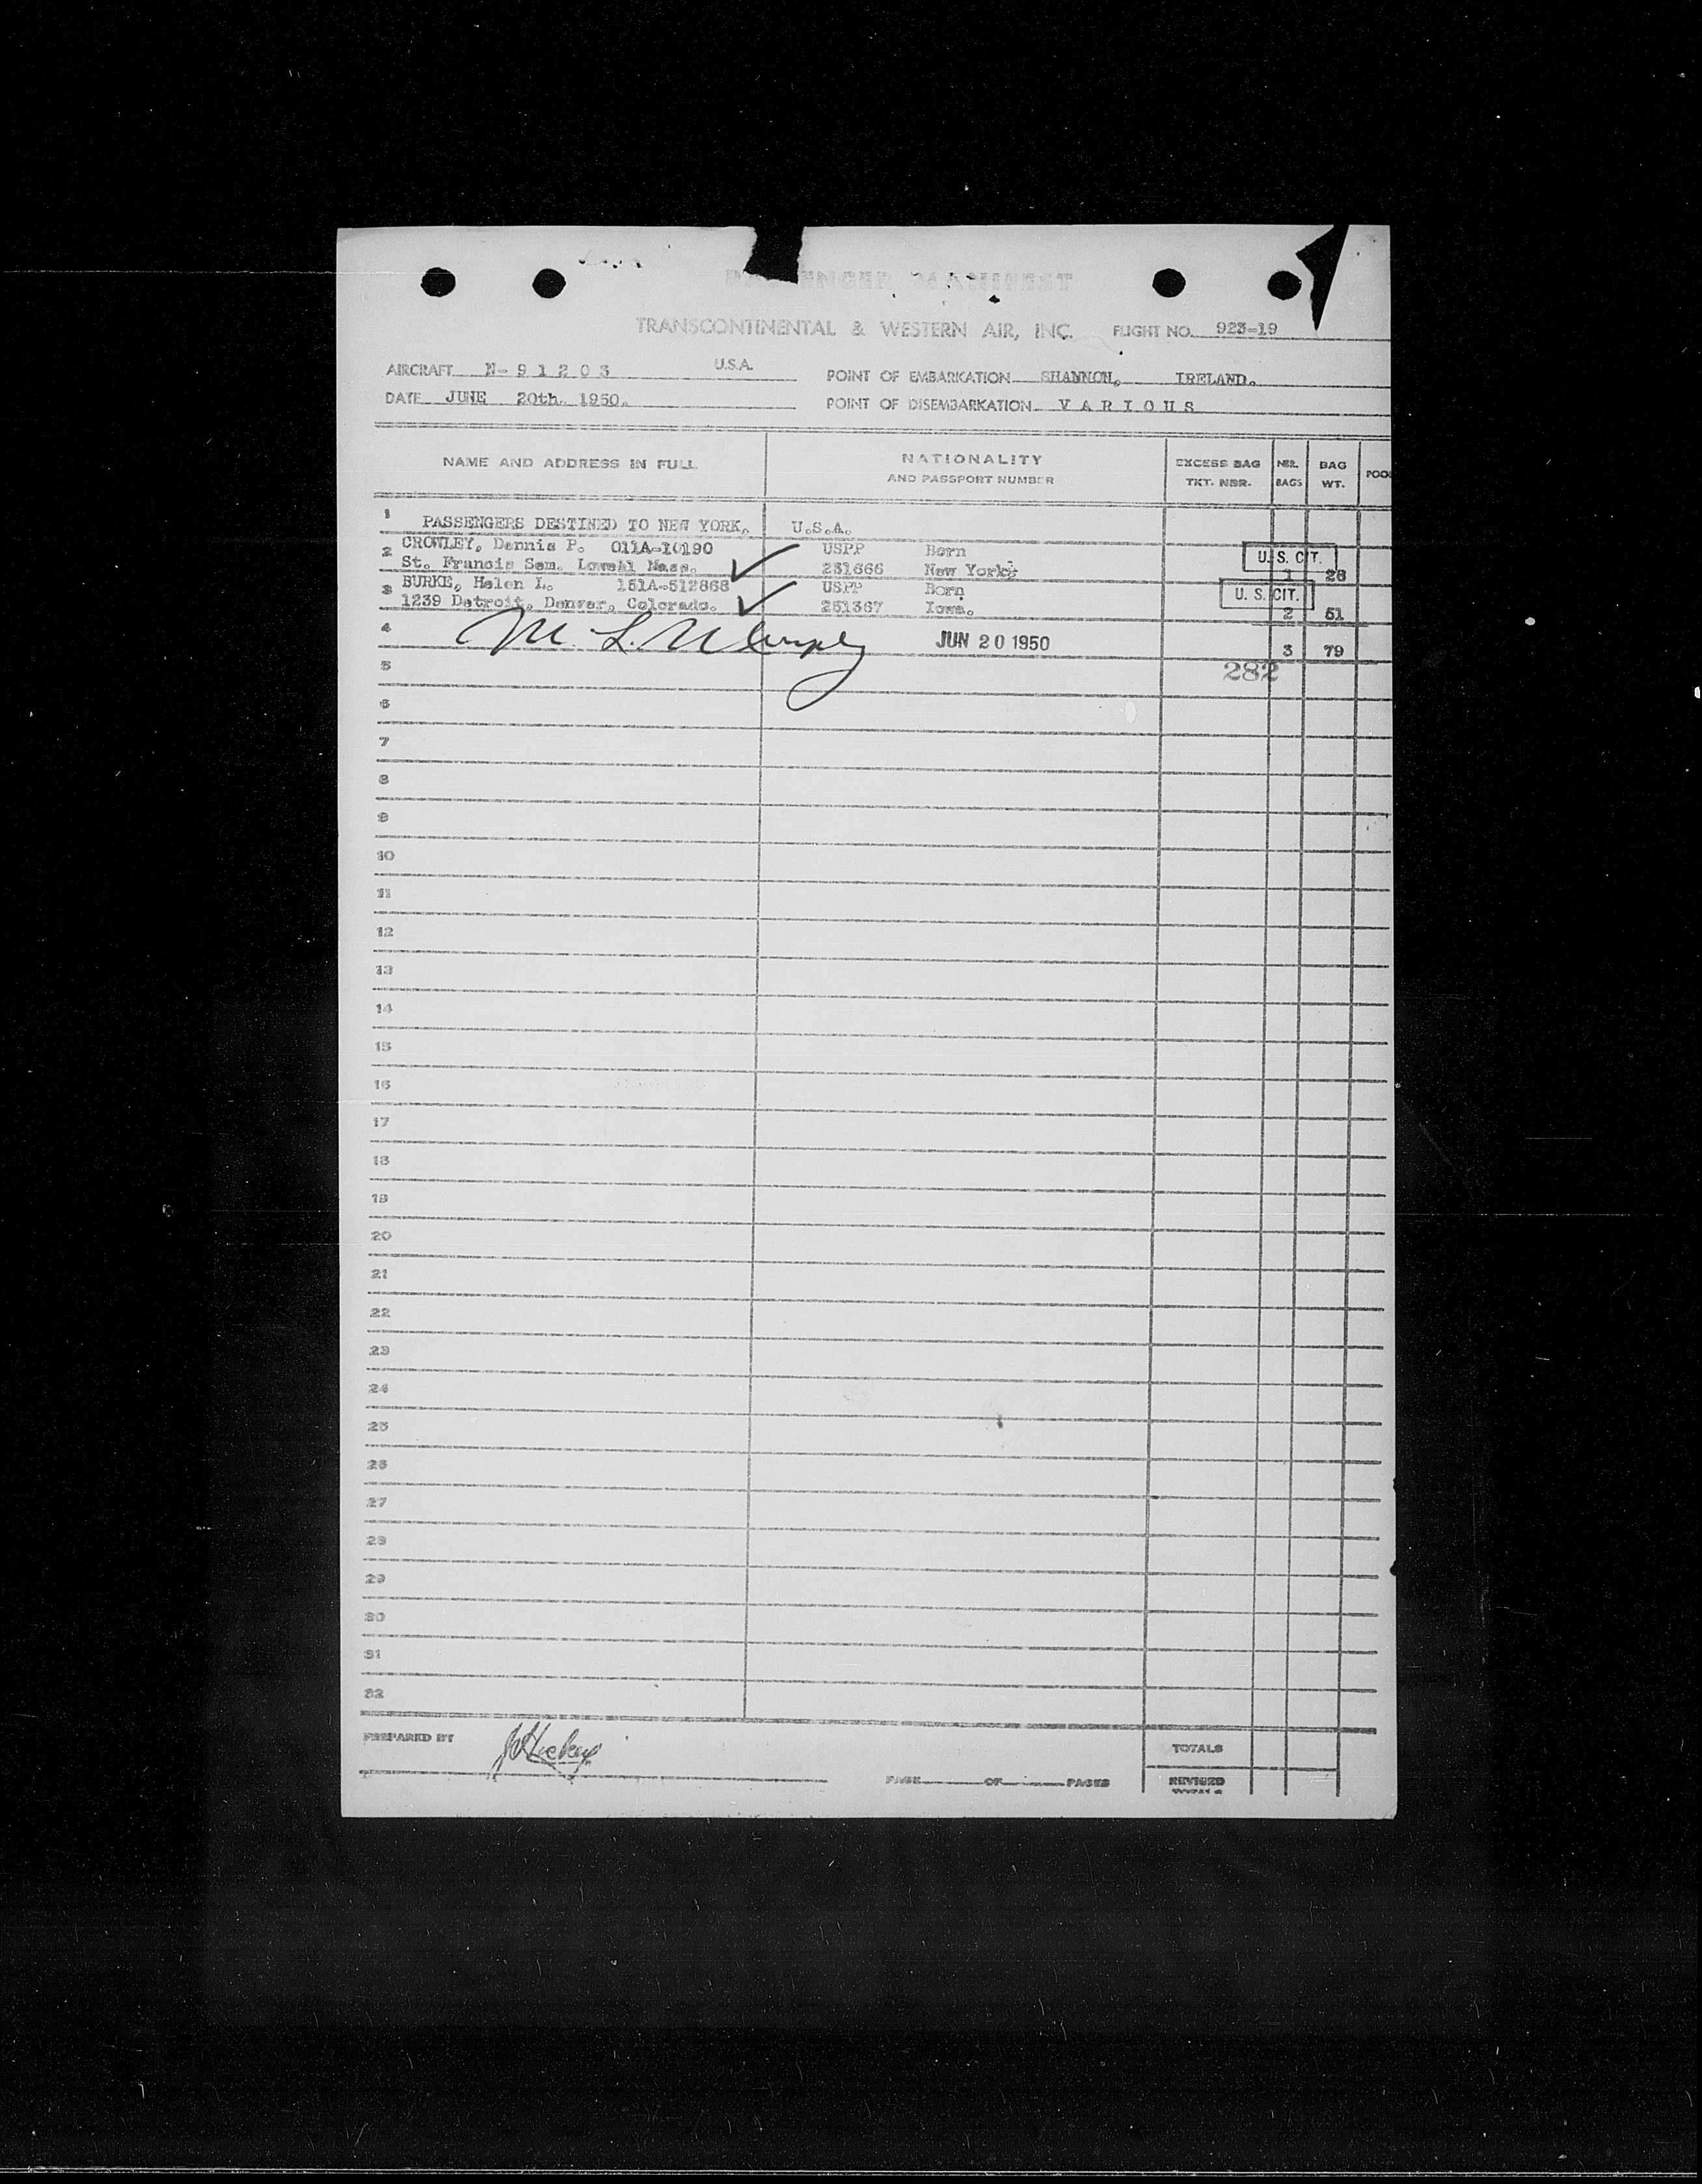 PASSENGER MANIFEST
TRANSCONTINENTAL & WESTERN AIR, INC. FLIGHT NO. 923-19
AIRCRAFT N-91203 U.S.A. POINT OF EMBARKATION SHANNON, IRELAND.
DATE JUNE 20th. 1950. POINT OF DISEMBARKATION VARIOUS
NAME AND ADDRESS IN FULL NATIONALITY AND PASSPORT NUMBER EXCESS BAG TKT. NBR. NBR. BAGS BAG WT. POO
1 PASSENGERS DESTINED TO NEW YORK, U.S.A.
2 CROWLEY, Dennis P. 011A-10190 USPP Born U.S. CIT.
St. Francis Sem. Lowell Mass. 231666 New York; 1 28
3 BURKE, Helen L. 151A-512868 USPP Born U.S. CIT.
1239 Detroit, Denver, Colorado. 251367 Iowa. 2 51
4 M. L. JUN 20 1950 3 79
5 282
6
7
8
9
10
11
12
13
14
15
16
17
18
19
20
21
22
23
24
25
26
27
28
29
30
31
32
PREPARED BY TOTALS
PAGE OF PAGES REVISED TOTALS